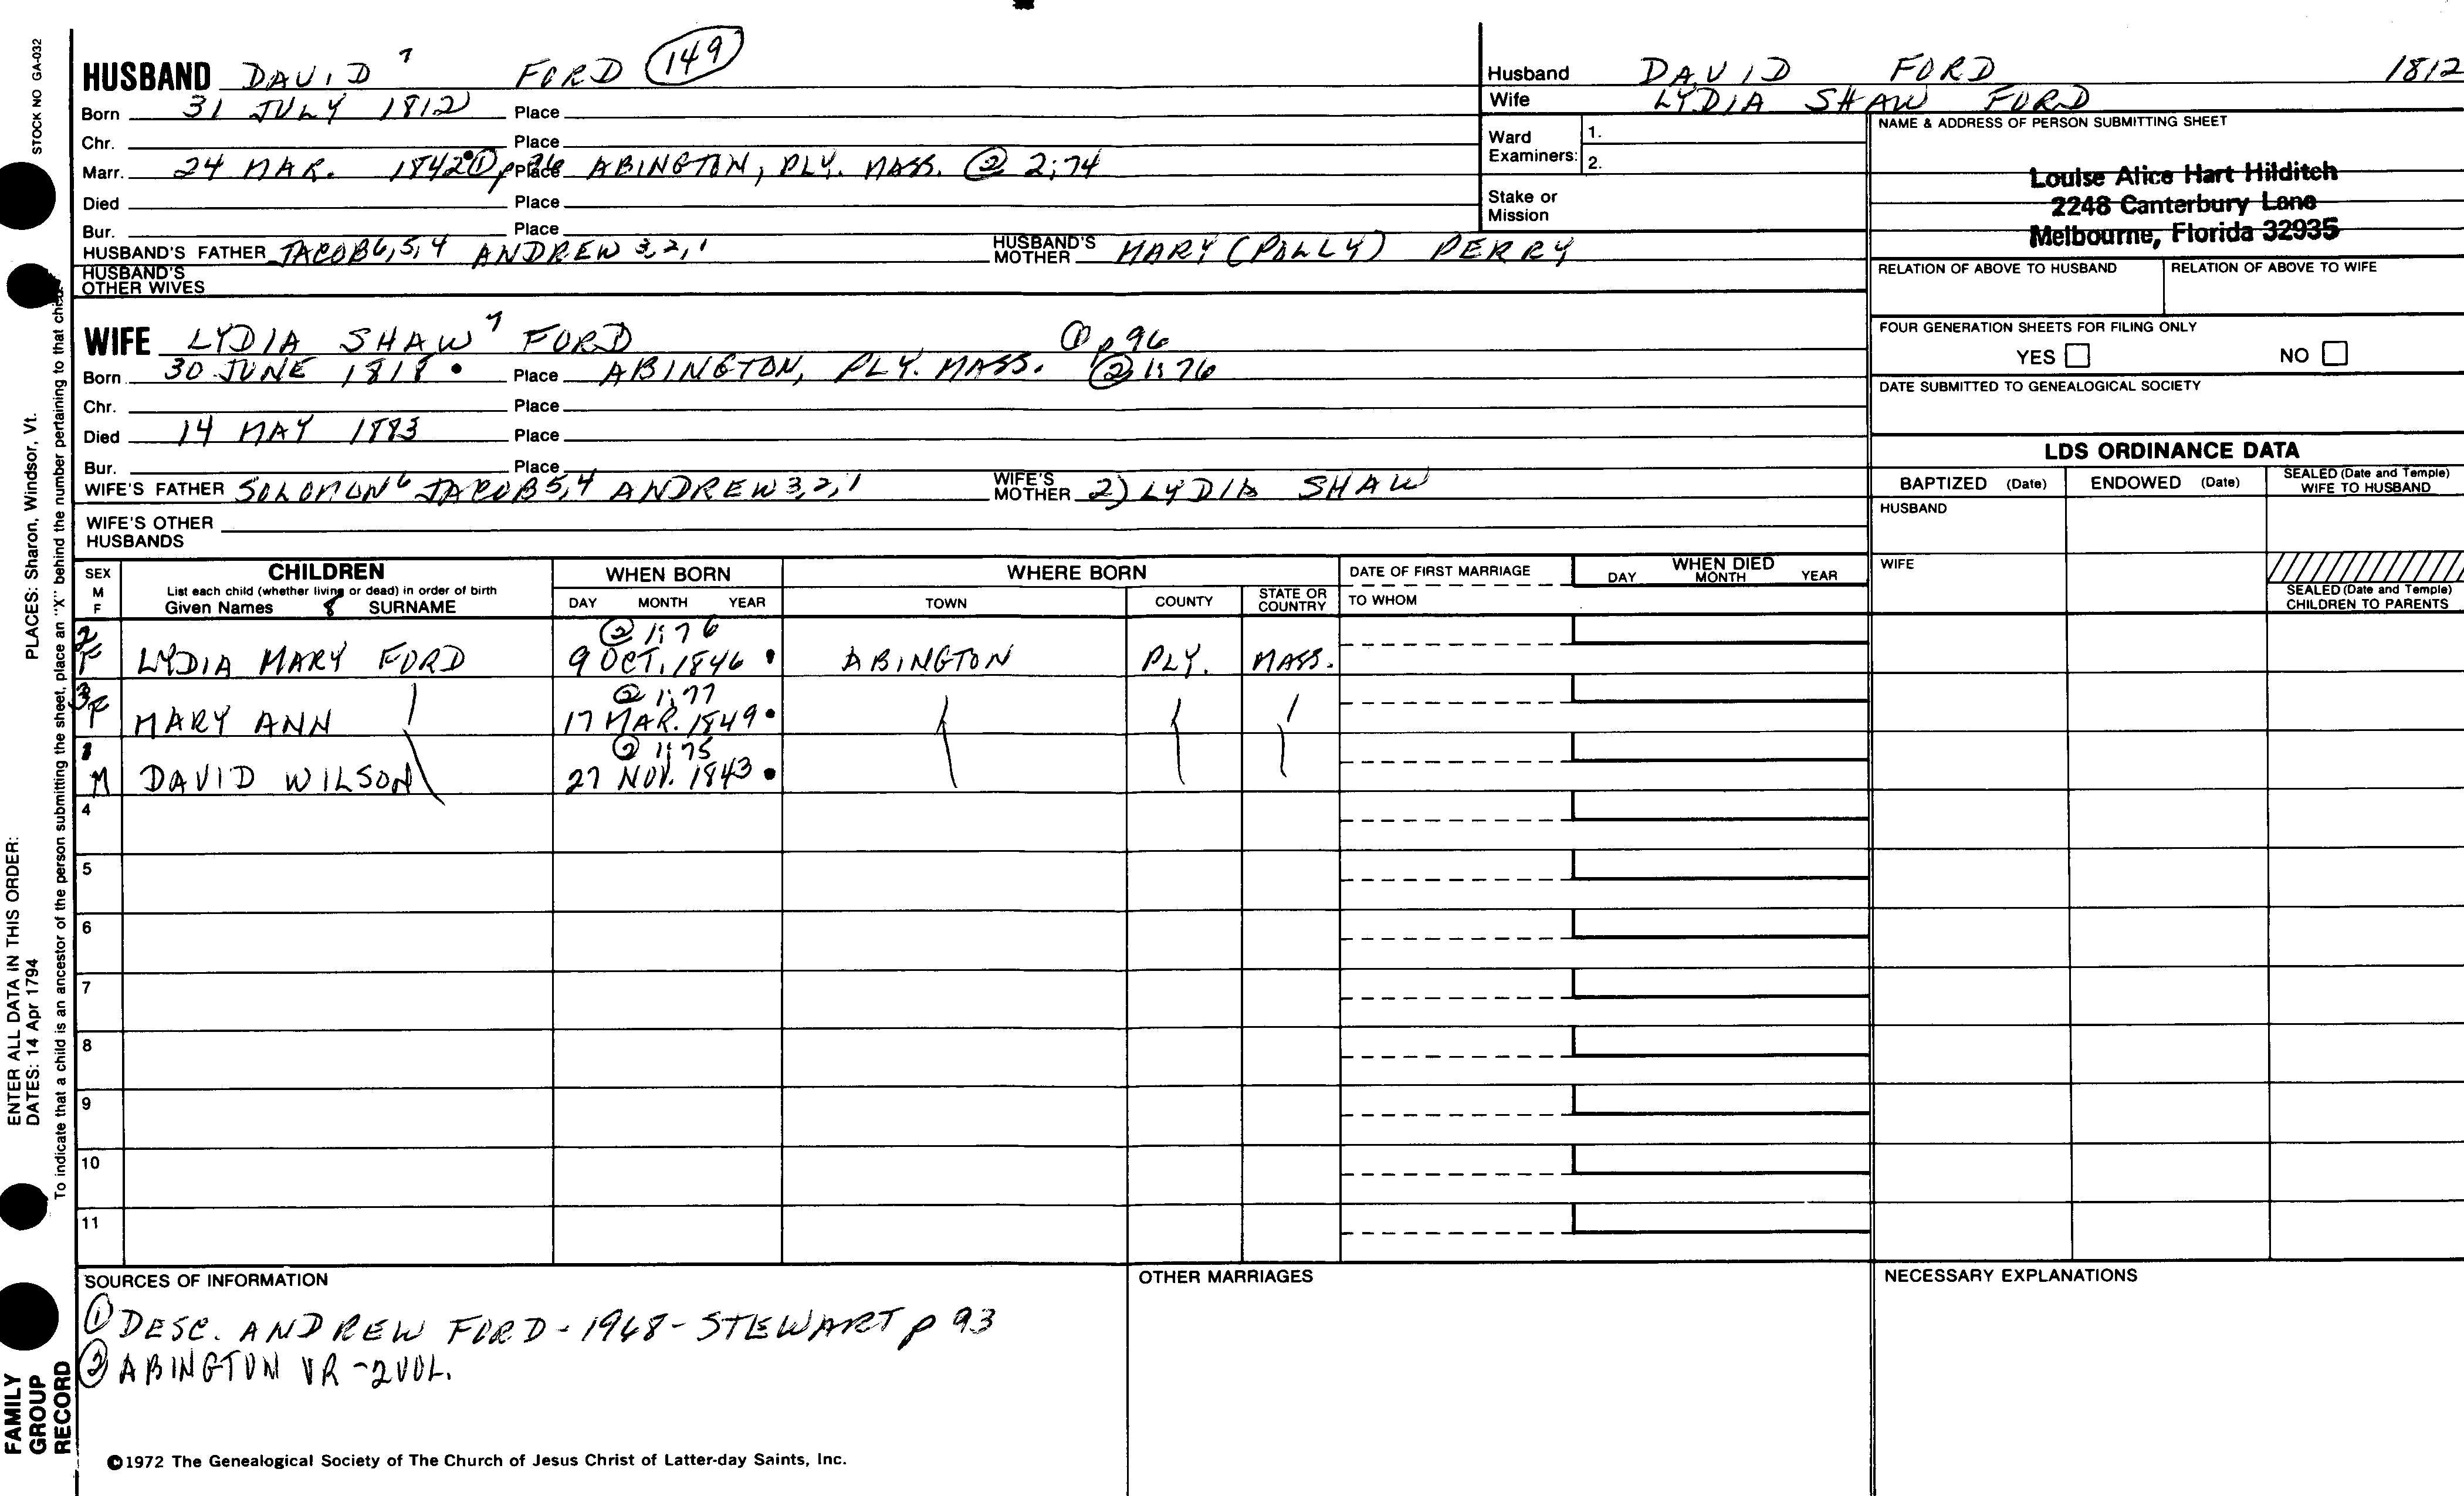 STOCK NO GA-032
HUSBAND DAVID 7 FORD 149
Born 31 JULY 1812 Place
Chr. Place
Marr. 24 MAR. 1842 ① Place ABINGTON, PLY. MASS. ② 2:74
Died Place
Bur. Place
HUSBAND'S FATHER JACOB 6,5,4 ANDREW 3,2,1 HUSBAND'S MOTHER MARY (POLLY) PERRY
HUSBAND'S OTHER WIVES
WIFE LYDIA SHAW 7 FORD ① p 96
Born 30 JUNE 1818 • Place ABINGTON, PLY. MASS. ② 1:76
Chr. Place
Died 14 MAY 1883 Place
Bur. Place
WIFE'S FATHER SOLOMON 6 JACOB 5,4 ANDREW 3,2,1 WIFE'S MOTHER 2) LYDIA SHAW
WIFE'S OTHER HUSBANDS
Husband DAVID FORD 1812
Wife LYDIA SHAW FORD
Ward Examiners: 1.
2.
Stake or Mission
NAME & ADDRESS OF PERSON SUBMITTING SHEET
Louise Alice Hart Hilditch
2248 Canterbury Lane
Melbourne, Florida 32935
RELATION OF ABOVE TO HUSBAND RELATION OF ABOVE TO WIFE
FOUR GENERATION SHEETS FOR FILING ONLY
YES NO
DATE SUBMITTED TO GENEALOGICAL SOCIETY
LDS ORDINANCE DATA
BAPTIZED (Date) ENDOWED (Date) SEALED (Date and Temple) WIFE TO HUSBAND
HUSBAND
WIFE
SEALED (Date and Temple) CHILDREN TO PARENTS
SEX M F
CHILDREN
List each child (whether living or dead) in order of birth
Given Names 8 SURNAME
WHEN BORN
DAY MONTH YEAR
WHERE BORN
TOWN COUNTY STATE OR COUNTRY
DATE OF FIRST MARRIAGE
TO WHOM
WHEN DIED
DAY MONTH YEAR
② 1:76
2 F LYDIA MARY FORD 9 OCT. 1846 • ABINGTON PLY. MASS.
② 1:77
3 F MARY ANN 17 MAR. 1849 •
② 1:75
1 M DAVID WILSON 27 NOV. 1843 •
4
5
6
7
8
9
10
11
SOURCES OF INFORMATION
① DESC. ANDREW FORD - 1968 - STEWART p 93
② ABINGTON VR - 2 VOL.
OTHER MARRIAGES
NECESSARY EXPLANATIONS
©1972 The Genealogical Society of The Church of Jesus Christ of Latter-day Saints, Inc.
PLACES: Sharon, Windsor, Vt.
ENTER ALL DATA IN THIS ORDER:
DATES: 14 Apr 1794
To indicate that a child is an ancestor of the person submitting the sheet, place an "X" behind the number pertaining to that child.
FAMILY
GROUP
RECORD